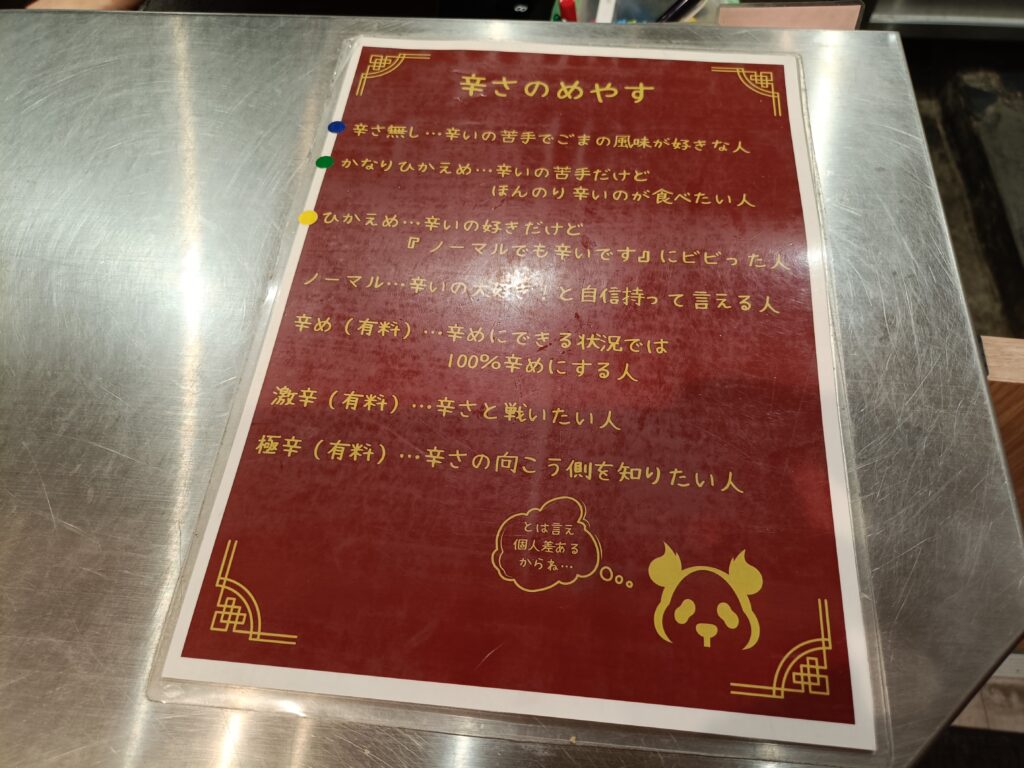 辛さのめやす
辛さ無し…辛いの苦手でごまの風味が好きな人
かなりひかえめ…辛いの苦手だけど
ほんのり辛いのが食べたい人
ひかえめ…辛いの好きだけど
『ノーマルでも辛いです』にビビった人
ノーマル…辛いの大好き！と自信持って言える人
辛め（有料）…辛めにできる状況では
100%辛めにする人
激辛（有料）…辛さと戦いたい人
極辛（有料）…辛さの向こう側を知りたい人
とは言え
個人差ある
からね…